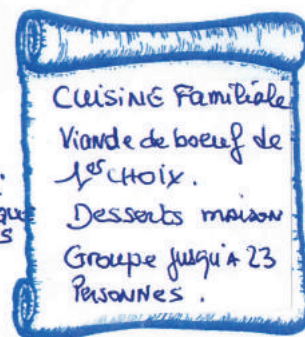 CUISINE Familiale
Viande de boeuf de
1er CHOIX.
Desserts maison
Groupe jusqu'A 23
Personnes.